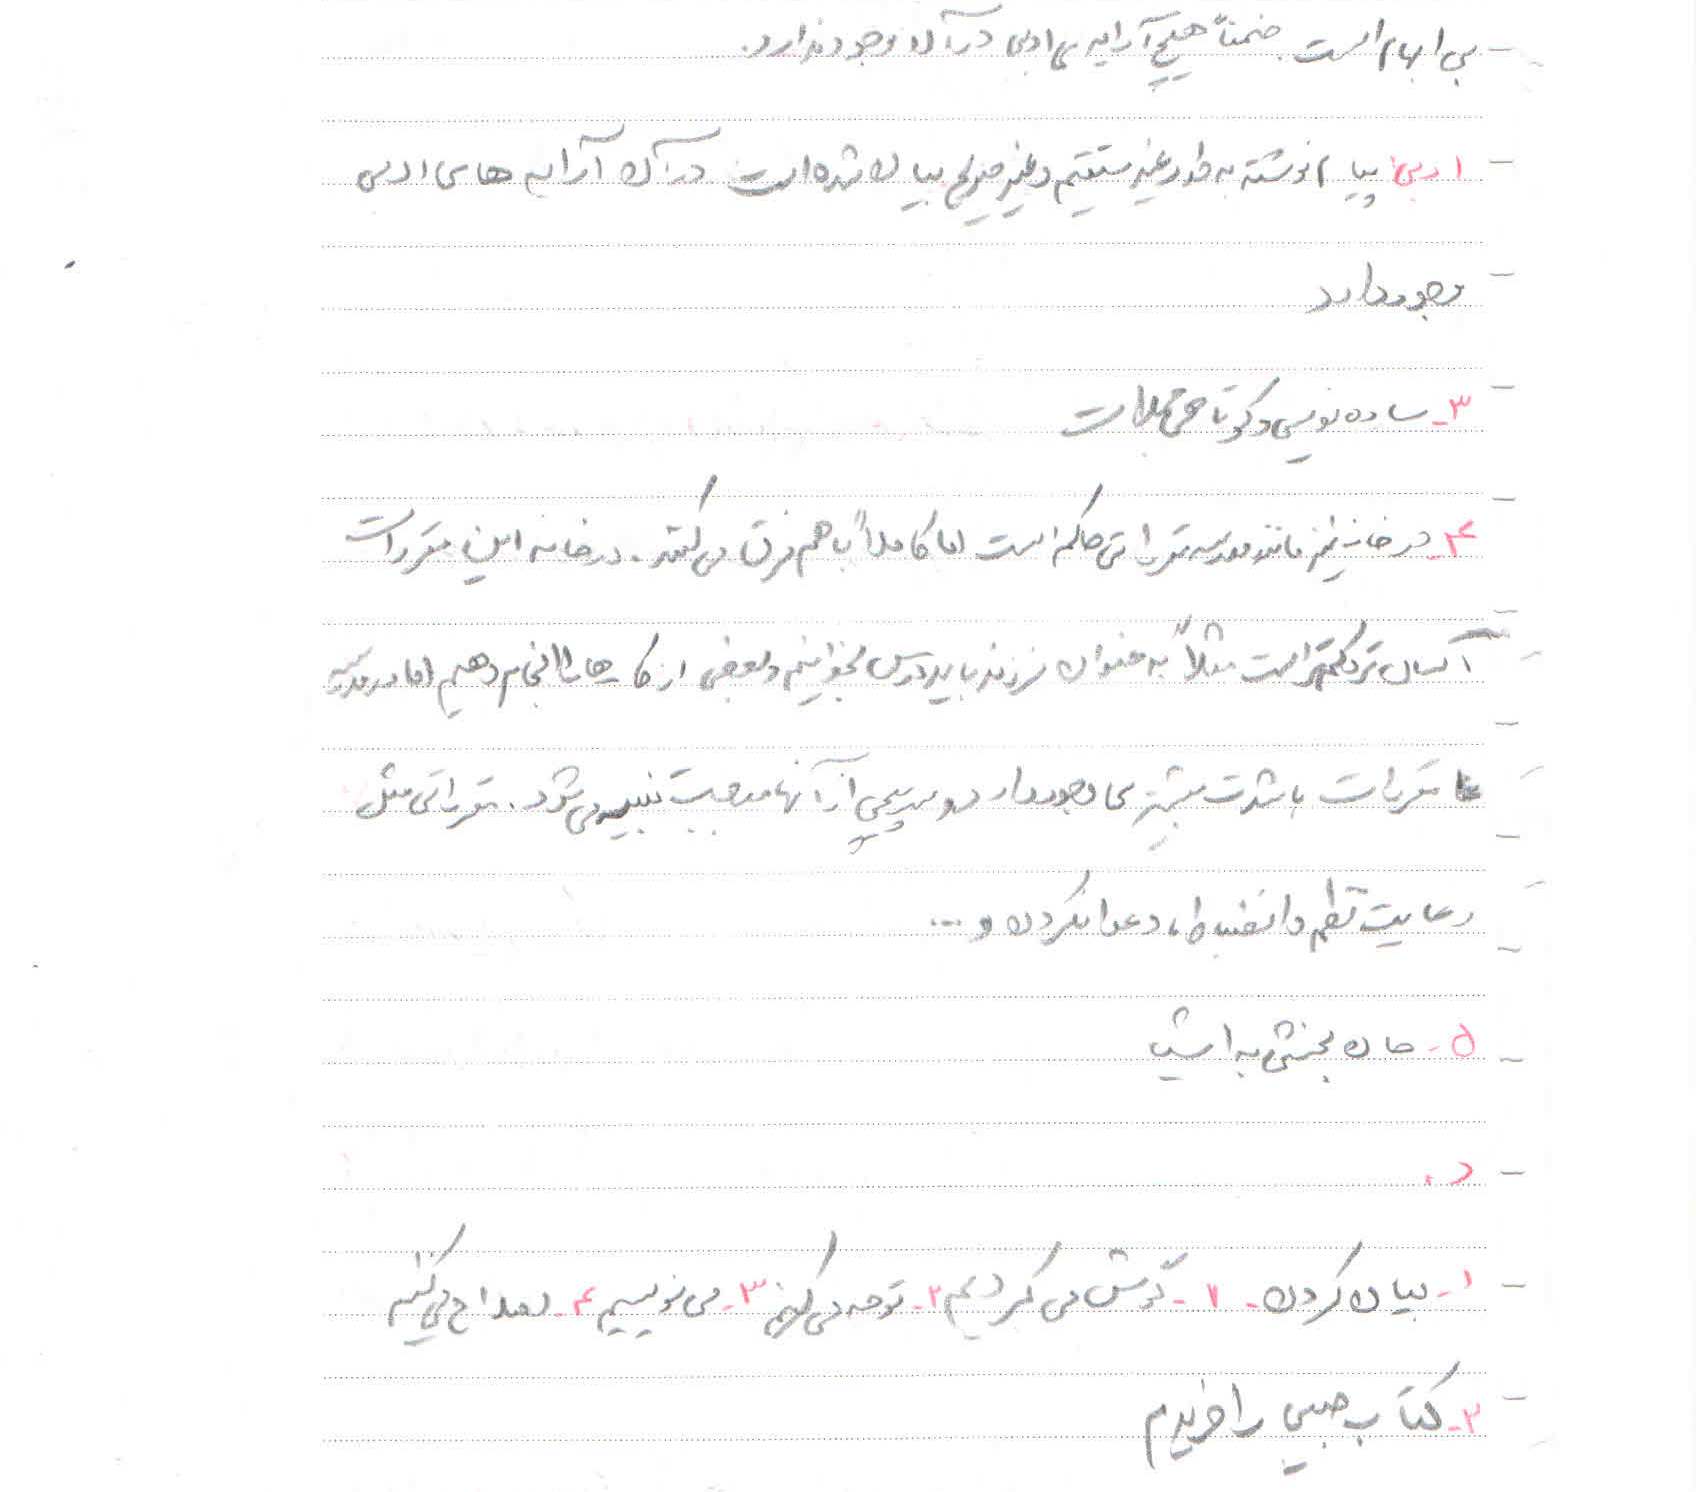 بی ابهام است. ضمناً هیچ آرایه ی ادبی در آن وجود ندارد.
ادبی: پیام نوشته به طور غیر مستقیم و غیر صریح بیان شده است در آن آرایه های ادبی
وجود دارد
۳- ساده نویسی و کوتاهی جملات
۴- در خانه نیز مانند مدرسه مقرراتی حاکم است اما کاملاً با هم فرق می کنند. در خانه این مقررات
آسان تر و کمتر است مثلاً به عنوان فرزند باید درس بخوانیم و بعضی از کارها را انجام دهیم اما در مدرسه
مقررات با شدت بیشتری وجود دارد و سرپیچی از آنها موجب تنبیه می شود. مقرراتی مثل
رعایت نظم و انضباط، دعوا نکردن و ...
۵- جان بخشی به اشیا
د.
۱- بیان کردن- ۱- گوش می کردیم ۲- توجه می کنیم ۳- می نویسیم ۴- اصلاح می کنیم
۲- کتاب جیبی را خریدم